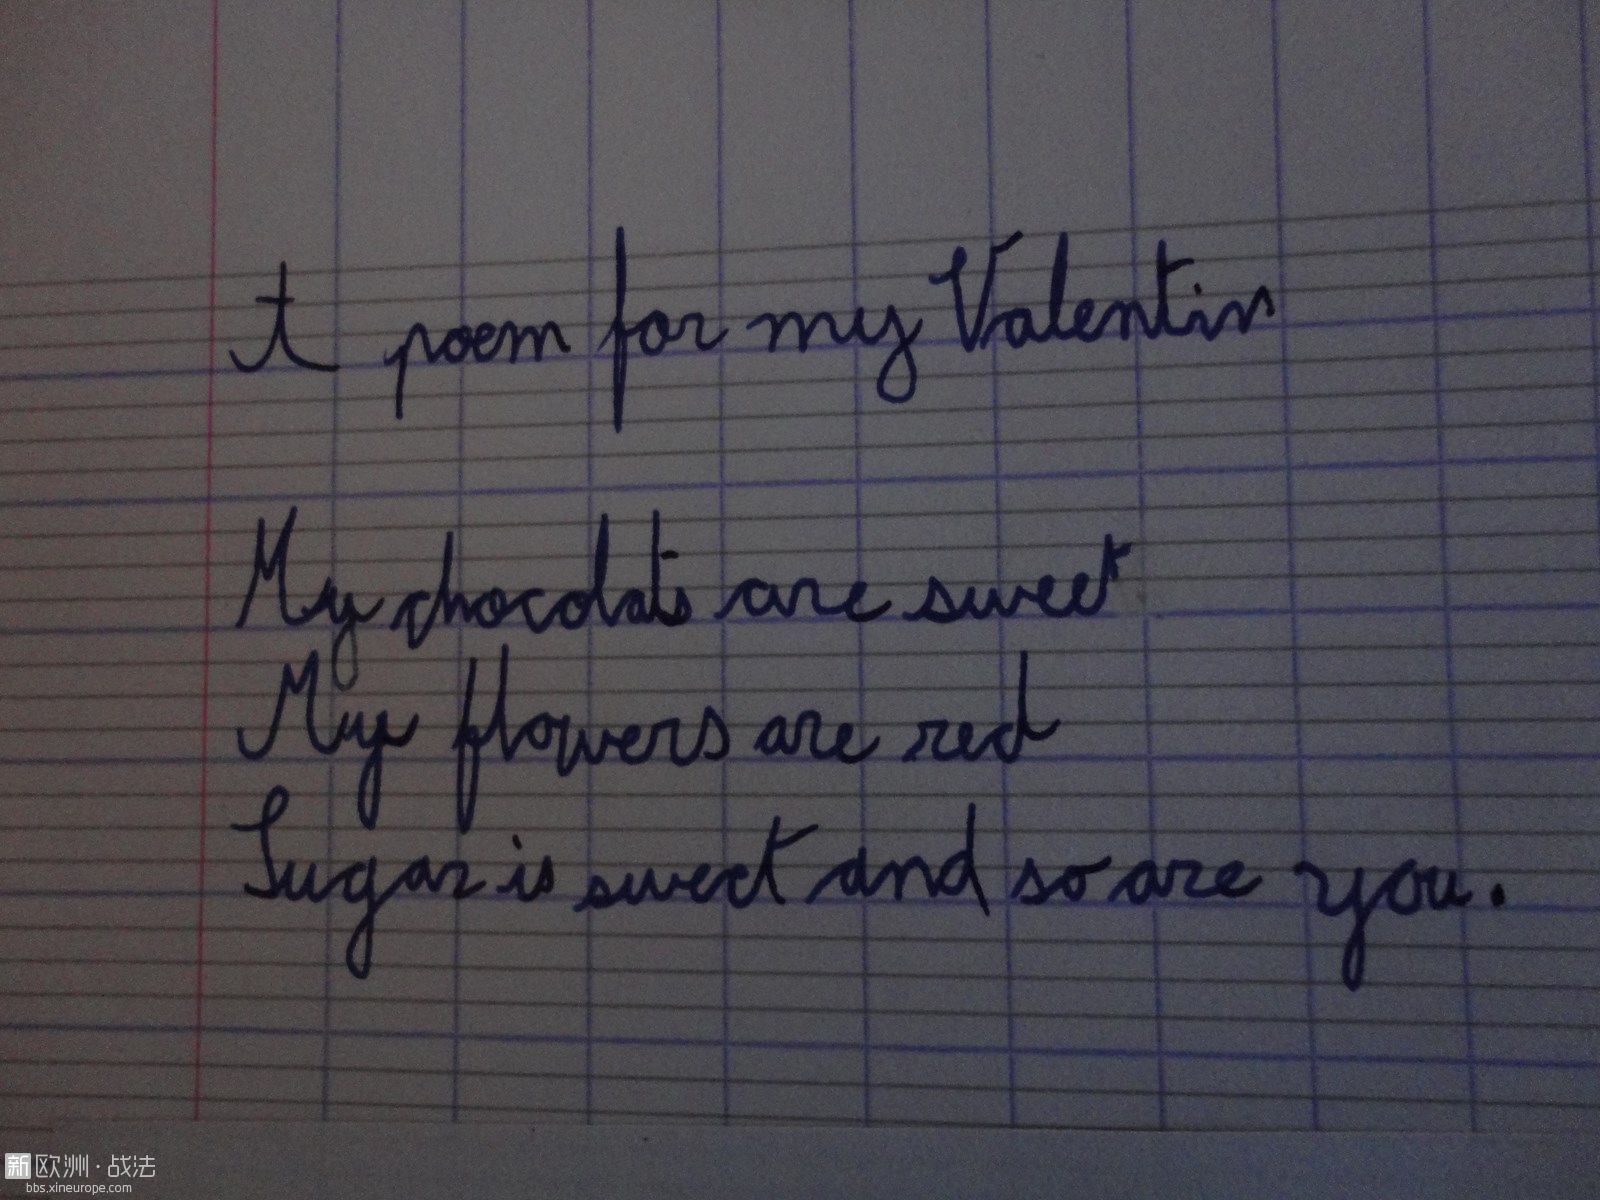 A poem for my Valentin
My chocolats are sweet
My flowers are red
Sugar is sweet and so are you.
新欧洲·战法
bbs.xineurope.com